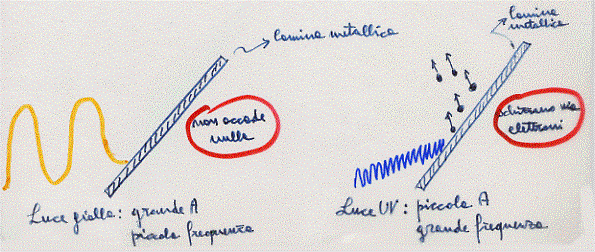 lamina metallica
non accade
nulla
Luce gialla: grande A
piccola frequenza
lamina
metallica
schizzano via
elettroni
Luce UV: piccola A
grande frequenza